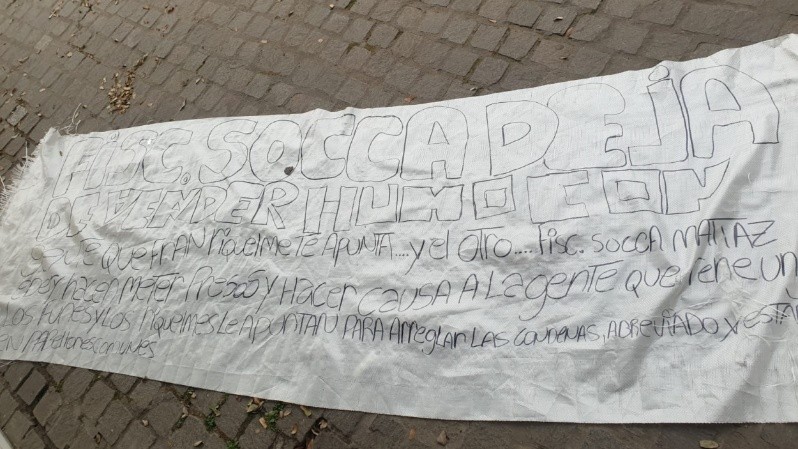 FISC. SOCCA DEJA
DE VENDER HUMO CON
QUE FRAN RIQUELME TE APUNTA.... y el otro.... Fisc. SOCCA MATIAZ
HACER METER PRESOS Y HACER CAUSA A LA gENTE QUE TIENE UN
LOS FUNES Y LOS RIQUELMES LE APUNTAN PARA ARREGLAR LAS CONDENAS, ABREVIADO Y ESTAR
EN PABELLONES CON